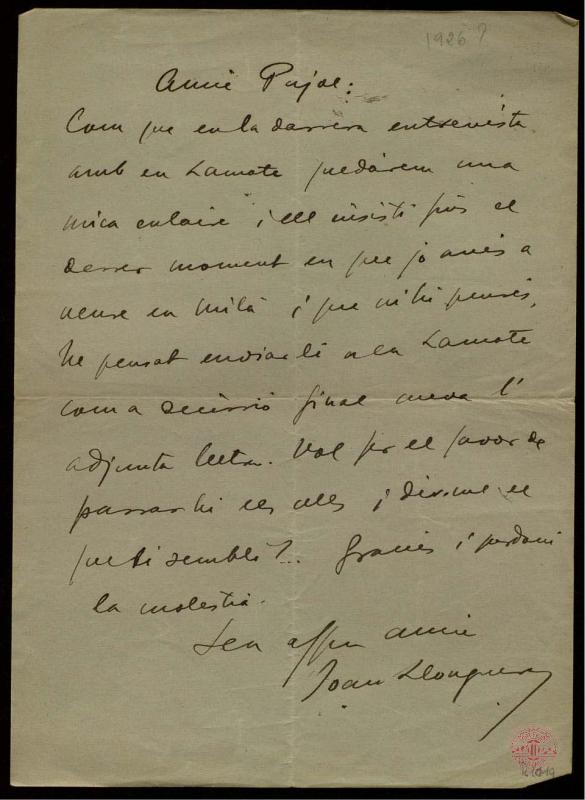 1926?
Amic Pujol:
Com que en la darrera entrevista
amb en Lamote quedàrem una
mica enlaire i ell insistí fins el
derrer moment en que jo anés a
veure en Milà i que m'hi pensés,
he pensat enviar li a en Lamote
com a decissió final meva l'
adjunta lletra. Vol fer el favor de
passar hi els ulls i dirme el
que li sembla?.. Gracies i perdoni
la molestia.
Seu affm amic
Joan Llongueras